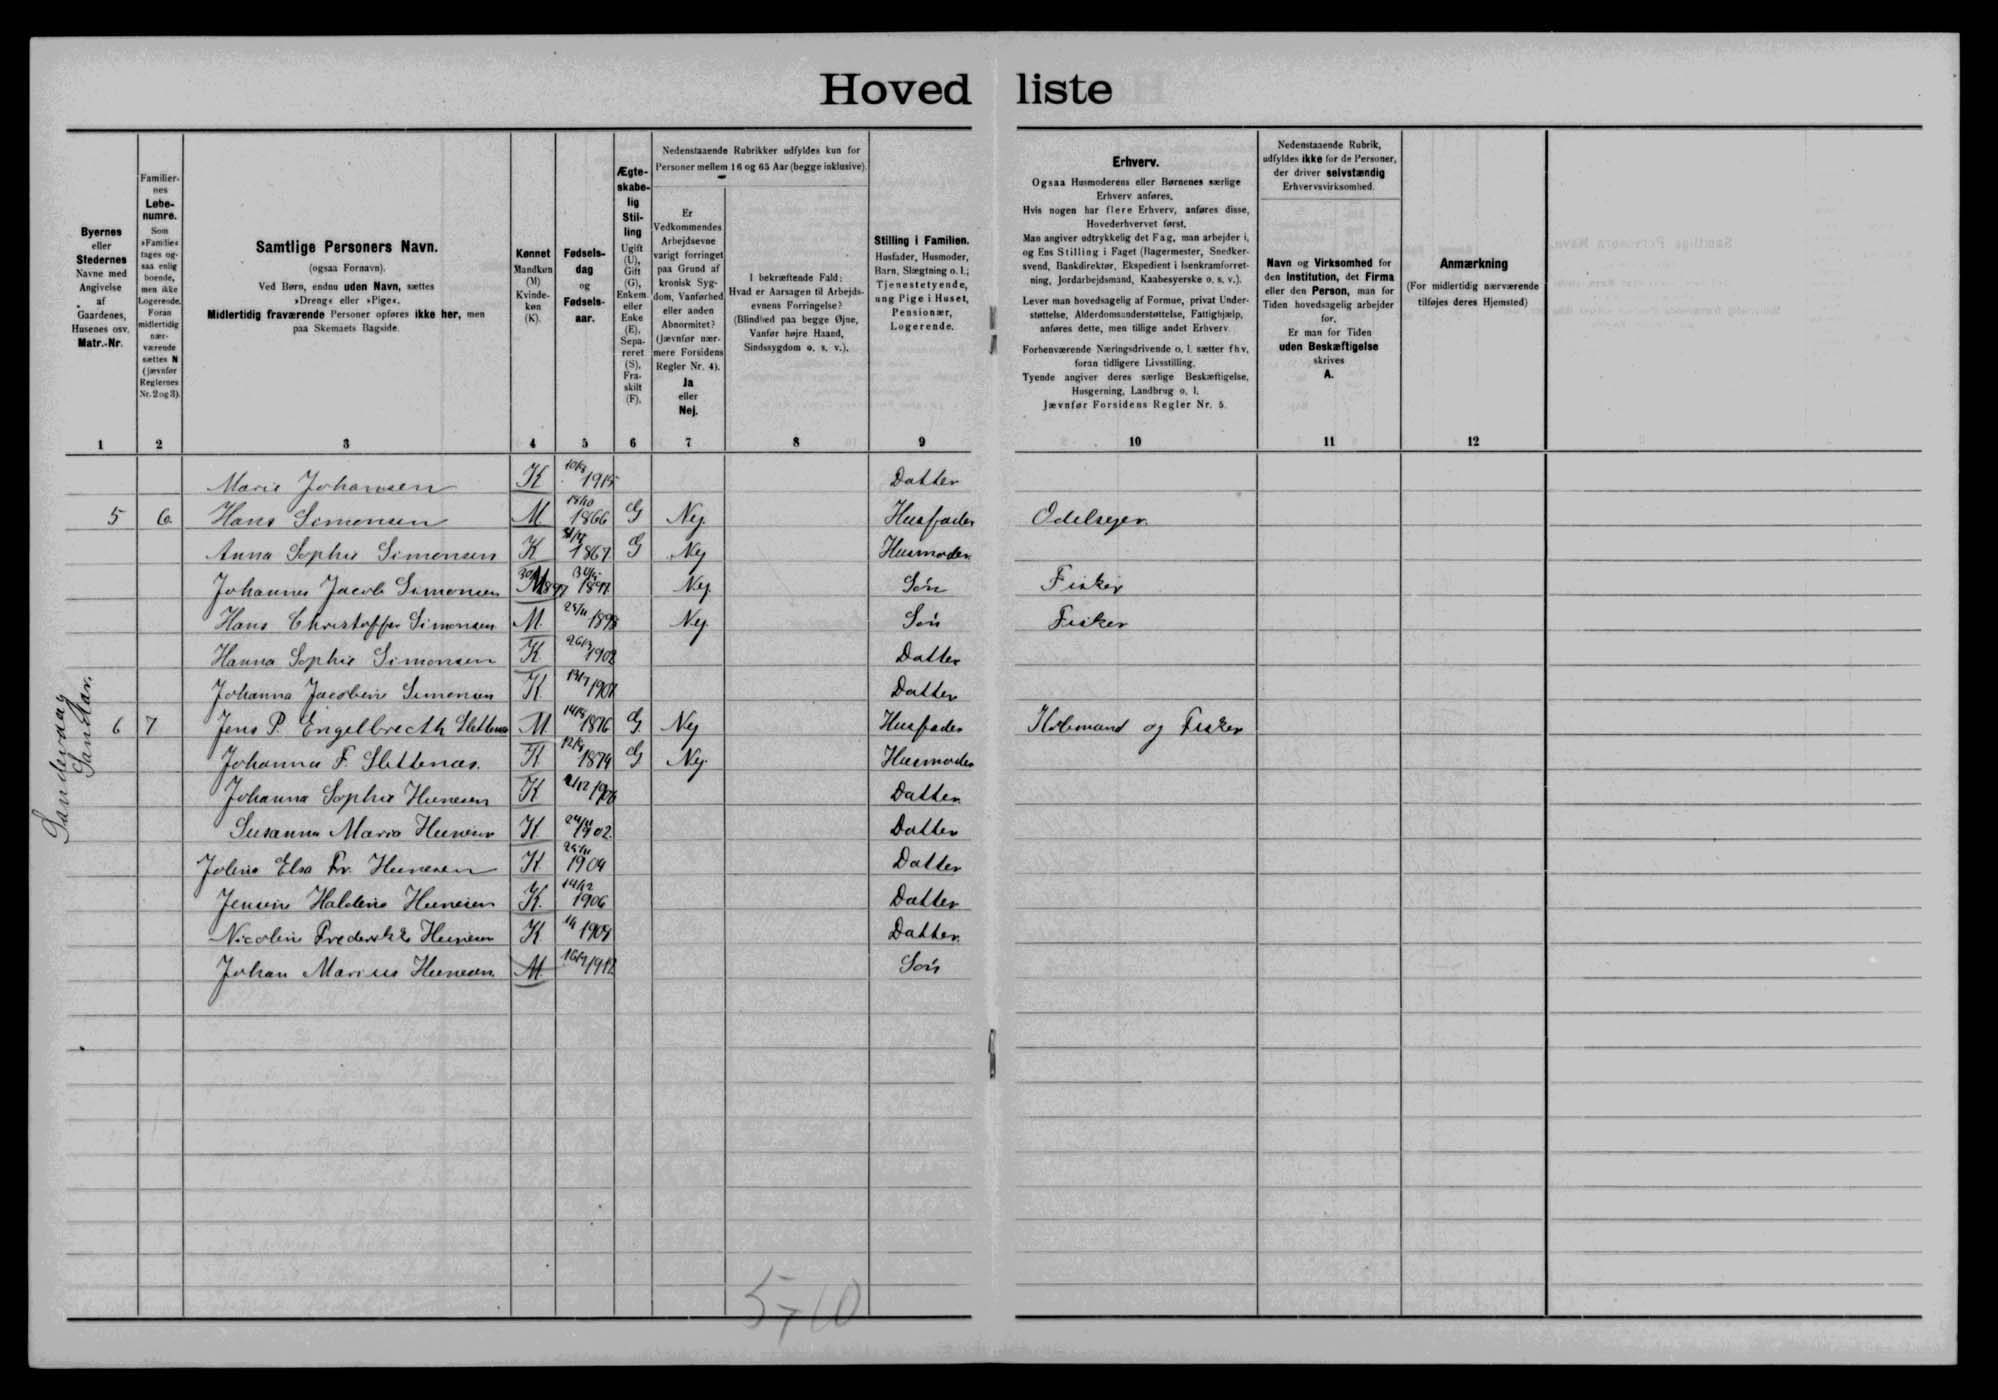 Hovedliste
Byernes
eller
Stedernes
Navne med
Angivelse
af
Gaardenes,
Husenes osv.
Matr.-Nr.
Familier-
nes
Løbe-
numre.
Som
»Familie«
tages og-
saa enlig
boende,
men ikke
Logerende.
Foran
midlertidig
nær-
værende
sættes N
(jævnfør
Reglernes
Nr. 2 og 3).
Samtlige Personers Navn.
(ogsaa Fornavn).
Ved Børn, endnu uden Navn, sættes
»Dreng« eller »Pige«.
Midlertidig fraværende Personer opføres ikke her, men
paa Skemaets Bagside.
Kønnet
Mandkøn
(M)
Kvinde-
køn
(K).
Fødsels-
dag
og
Fødsels-
aar.
Ægte-
skabe-
lig
Stil-
ling
Ugift
(U),
Gift
(G),
Enkem.
eller
Enke
(E),
Sepa-
reret
(S),
Fra-
skilt
(F).
Nedenstaaende Rubrikker udfyldes kun for
Personer mellem 16 og 65 Aar (begge inklusive).
Er
Vedkommendes
Arbejdsevne
varigt forringet
paa Grund af
kronisk Syg-
dom, Vanførhed
eller anden
Abnormitet?
(Jævnfør nær-
mere Forsidens
Regler Nr. 4).
Ja
eller
Nej.
I bekræftende Fald:
Hvad er Aarsagen til Arbejds-
evnens Forringelse?
(Blindhed paa begge Øjne,
Vanfør højre Haand,
Sindssygdom o. s. v.).
Stilling i Familien.
Husfader, Husmoder,
Barn, Slægtning o. l.;
Tjenestetyende,
ung Pige i Huset,
Pensionær,
Logerende.
Erhverv.
Ogsaa Husmoderens eller Børnenes særlige
Erhverv anføres.
Hvis nogen har flere Erhverv, anføres disse,
Hovederhvervet først.
Man angiver udtrykkelig det Fag, man arbejder i,
og Ens Stilling i Faget (Bagermester, Snedker-
svend, Bankdirektør, Ekspedient i Isenkramforret-
ning, Jordarbejdsmand, Kaabesyerske o. s. v.).
Lever man hovedsagelig af Formue, privat Under-
støttelse, Alderdomsunderstøttelse, Fattighjælp,
anføres dette, men tillige andet Erhverv.
Forhenværende Næringsdrivende o. l. sætter fhv.
foran tidligere Livsstilling.
Tyende angiver deres særlige Beskæftigelse,
Husgerning, Landbrug o. l.
Jævnfør Forsidens Regler Nr. 5.
Nedenstaaende Rubrik,
udfyldes ikke for de Personer,
der driver selvstændig
Erhvervsvirksomhed.
Navn og Virksomhed for
den Institution, det Firma
eller den Person, man for
Tiden hovedsagelig arbejder
for.
Er man for Tiden
uden Beskæftigelse
skrives
A.
Anmærkning
(For midlertidig nærværende
tilføjes deres Hjemsted)
1 2 3 4 5 6 7 8 9 10 11 12
Marie Johansen K 1915 Datter
5 6 Hans Simonsen M 1866 G Nej. Husfader Odelsejer
Anna Sophie Simonsen K 1867 G Nej Husmoder
Johannes Jacob Simonsen M 1897 Nej. Søn Fisker
Hans Christoffer Simonsen M. 1898 Nej. Søn Fisker
Hanna Sophie Simonsen K 1902 Datter
Johanna Jacobine Simonsen K 1907 Datter
6 7 Jens P. Engelbrecth Slettenæs M 1876 G. Nej Husfader Købmand og Fisker
Johanna F. Slettenæs. K 1874 G Nej. Husmoder
Johanna Sophie Heinesen K Datter
Susanna Maria Heinesen K 1902. Datter
Joline Elsa Fr. Heinesen K 1904 Datter
Jensine Haldine Heinesen K. 14/12 1906 Datter
Nicoline Frederikke Heinesen K Datter.
Johan Marius Heinesen M 1912 Søn
Sandevaag